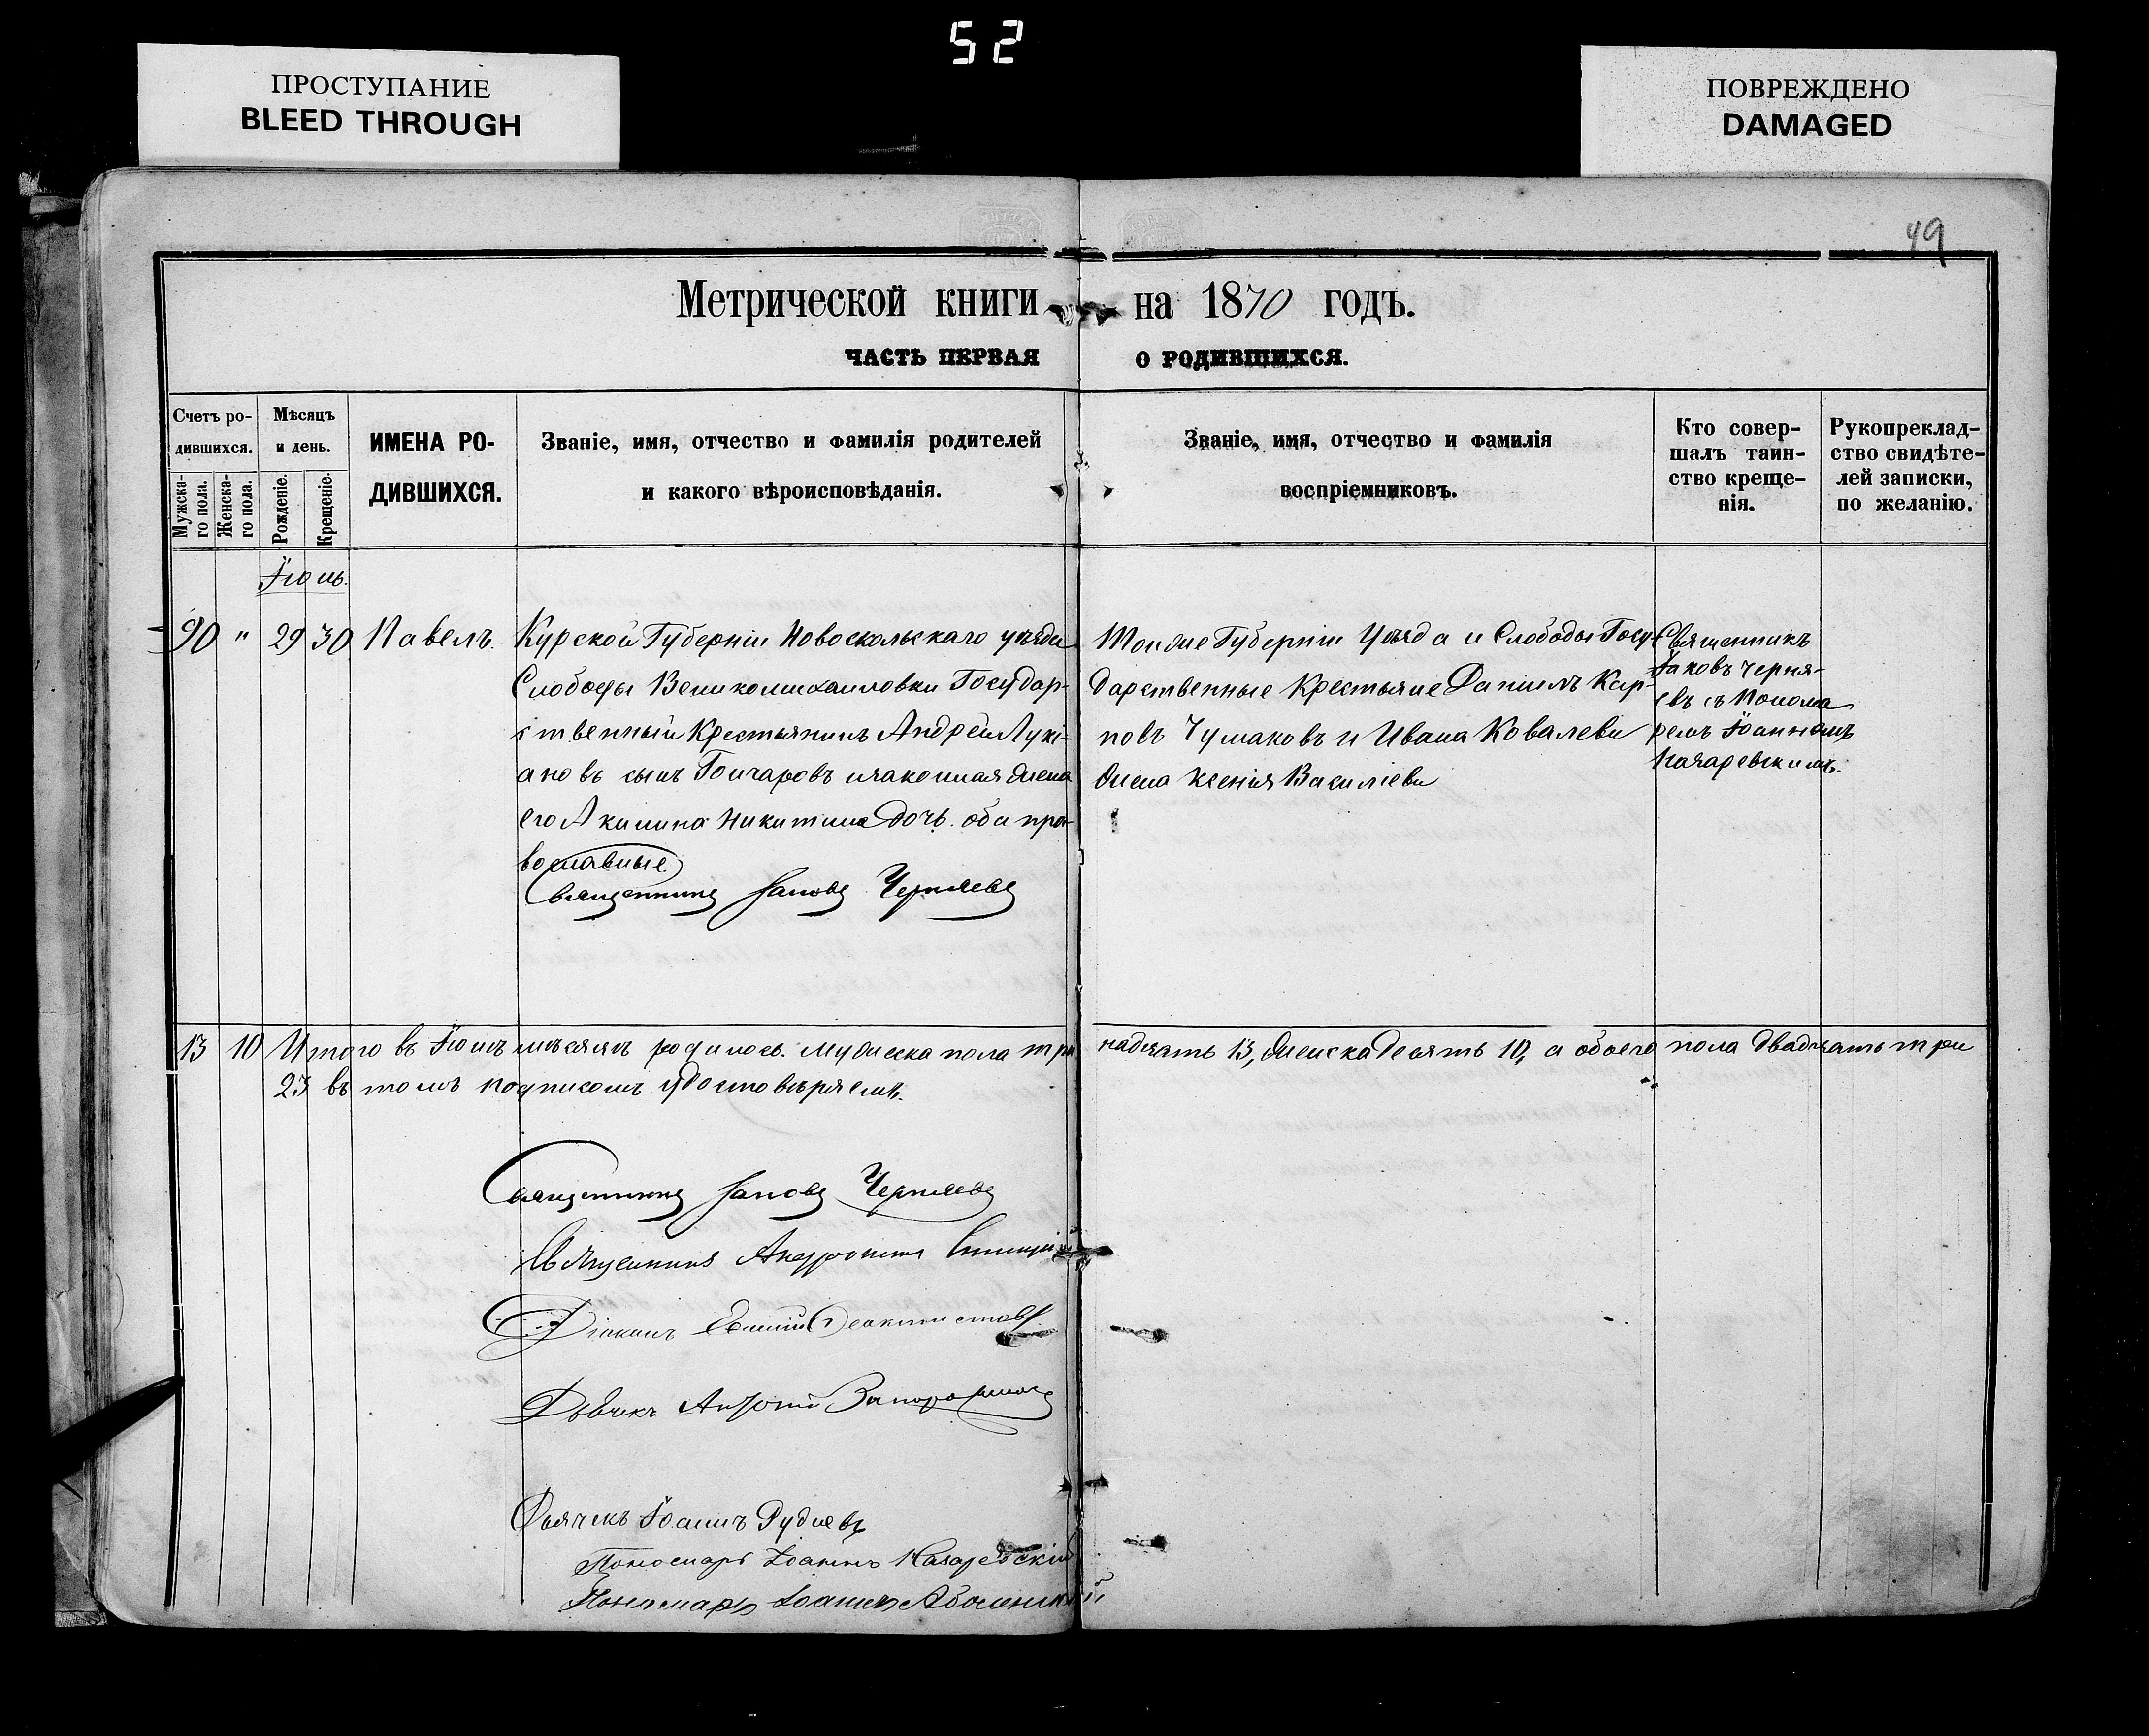 52
ПРОСТУПАНИЕ
BLEED THROUGH
ПОВРЕЖДЕНО
DAMAGED
49
Метрической книги на 1870 годъ.
ЧАСТЬ ПЕРВАЯ О РОДИВШИХСЯ.
Счетъ ро-
дившихся.
Мужска-
го пола.
Женска-
го пола.
Мѣсяцъ
и день.
Рожденіе.
Крещеніе.
ИМЕНА РО-
ДИВШИХСЯ.
Званіе, имя, отчество и фамилія родителей
и какого вѣроисповѣданія.
Званіе, имя, отчество и фамилія
воспріемниковъ.
Кто совер-
шалъ таин-
ство креще-
нія.
Рукопреклад-
ство свидѣте-
лей записки,
по желанію.
Іюль.
90 " 29 30 Павелъ.
Курской Губерніи Новоскольскаго уѣзда
Слободы Великомихаиловки Государ-
ственный Крестьянинъ Андрей Лукі-
ановъ сынъ Гончаровъ и законная жена
его Акилина Никитина дочь. оба пра-
вославные.
Священникъ Іаковъ Черняевъ
Тойже Губерніи Уѣзда и Слободы Госу-
дарственные Крестьяне Даніилъ Кар-
повъ Чумаковъ и Ивана Ковалева
жена Ксенія Василіева
Священникъ
Іаковъ Черня-
евъ съ Понома
ремъ Іоанномъ
Назаревскимъ.
13 10 Итого въ Іюлѣ мѣсяцѣ родилось. Мужеска пола три надцать 13, женска десять 10, а обоего пола двадцать три
23 въ томъ подписомъ удостовѣряемъ.
Священникъ Іаковъ Черняевъ
Священникъ
Діаконъ Ѳеоктистовъ
Дьячекъ
Дьячекъ Іоаннъ Рудневъ
Пономарь Іоаннъ Назаревскій
Пономарь Іоаннъ